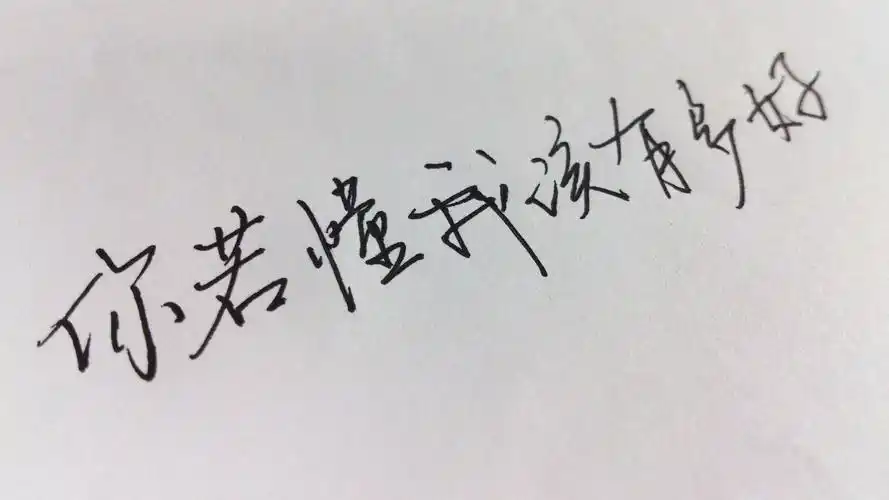 你若懂我该有多好